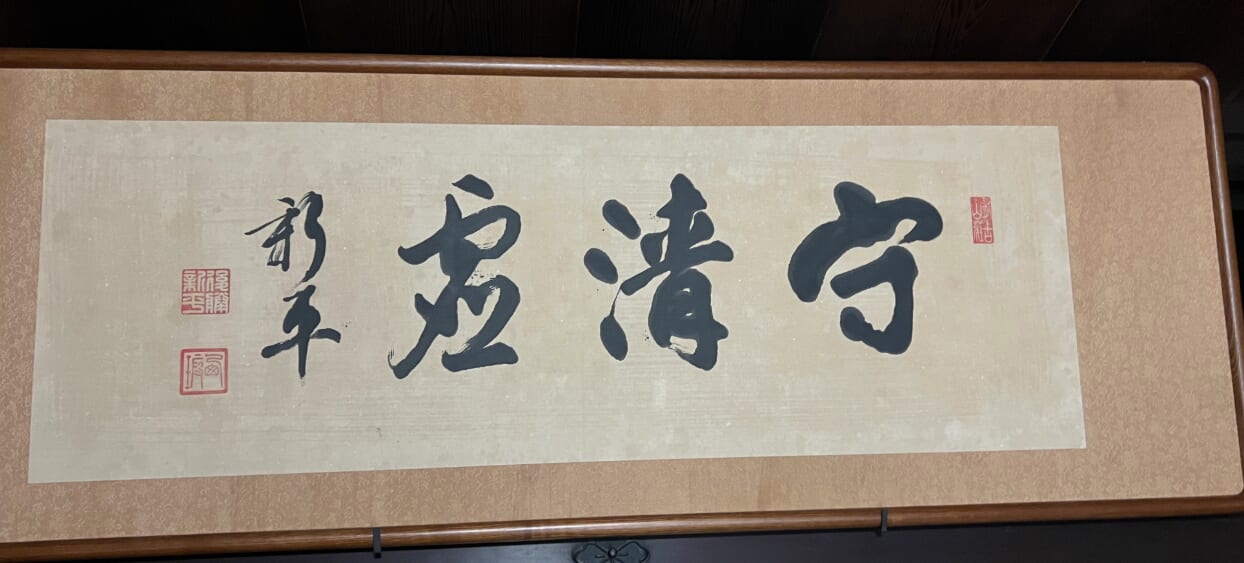 守清虚
新平
後藤新平